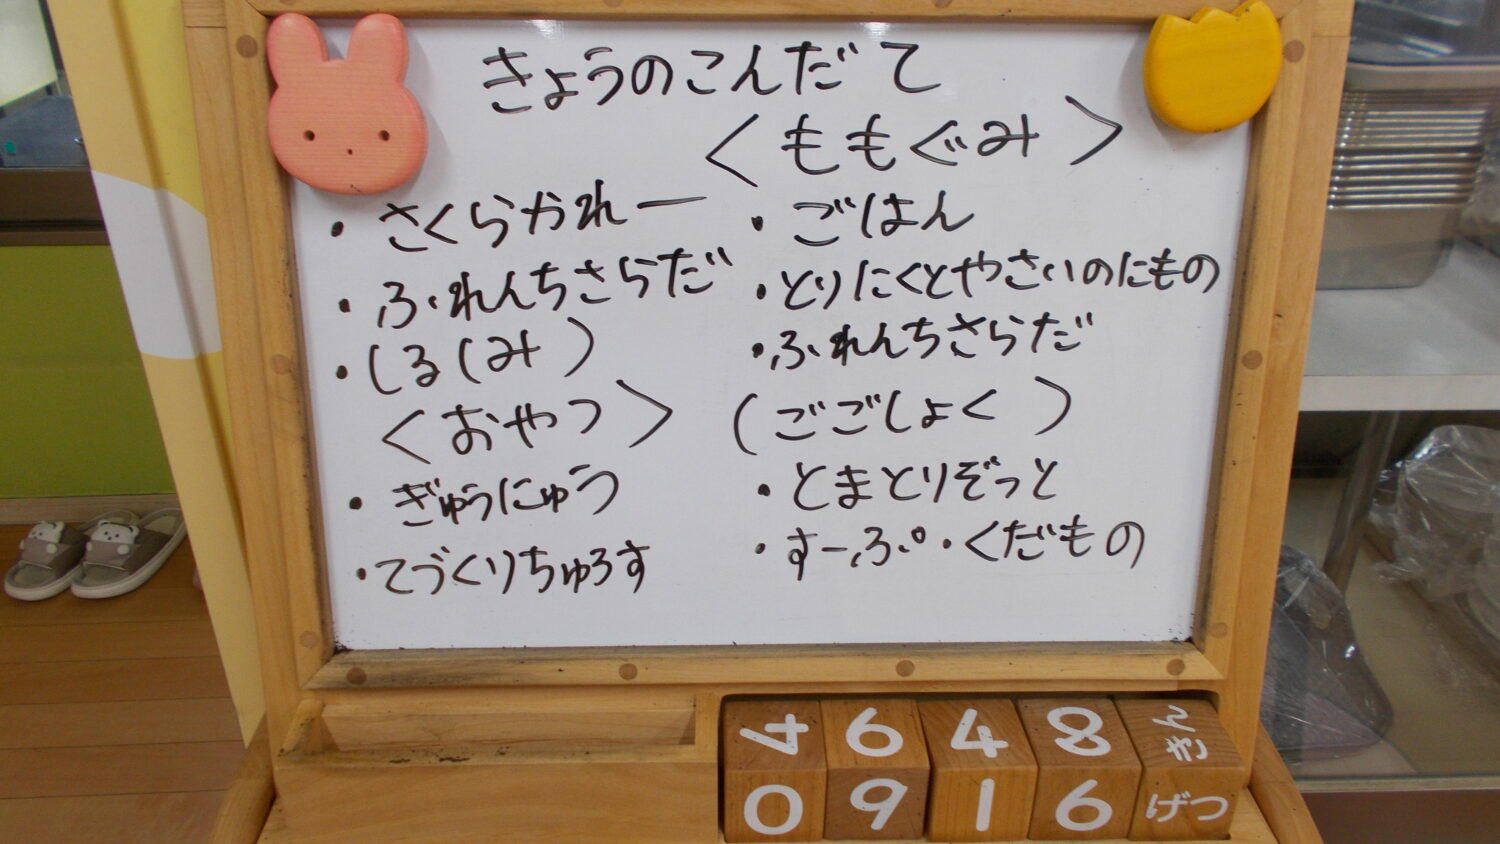 きょうのこんだて
・さくらかれー
・ふれんちさらだ
・(しるしみ)
<おやつ>
・ぎゅうにゅう
・てづくりちゅろす
<ももぐみ>
・ごはん
・とりにくとやさいのにもの
・ふれんちさらだ
(ごごしょく)
・とまとりぞっと
・すーぷ・くだもの
4 6 4 8 きん
0 9 1 6 げつ